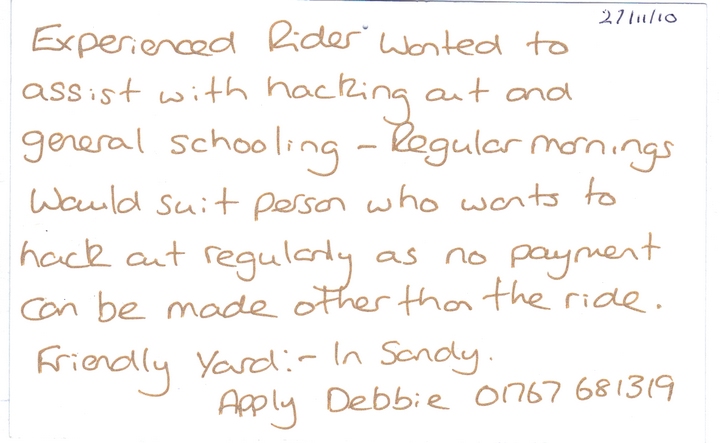 27/11/10
Experienced Rider Wanted to
assist with hacking out and
general schooling - Regular mornings
Would suit person who wants to
hack out regularly as no payment
can be made other than the ride.
Friendly Yard:- In Sandy.
Apply Debbie 01767 681319